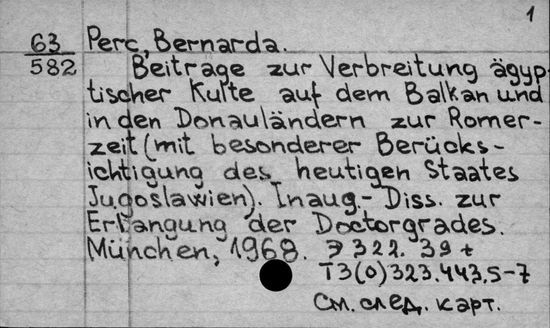 1
63 Perc, Bernarda.
582 Beitrage zur Verbreitung ägyp-
tischer Kulte auf dem Balkan und
in den Donauländern zur Romer-
zeit (mit besonderer Berücks-
ichtigung des heutigen Staates
Jugoslawien). Inaug.- Diss. zur
Erlangung der Doctorgrades.
München, 1968. Э 322.39 +
T3(0)323.443,5-7
См. след. карт.